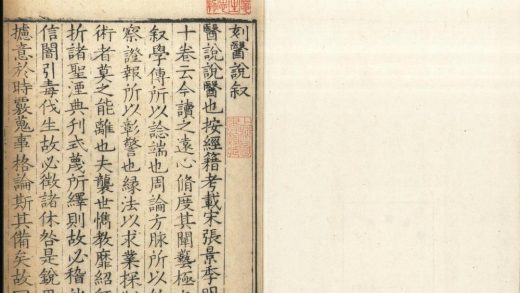 刻醫說叙
醫說說醫也按經籍考載宋張景季明
十卷云今讀之遠心脩度其闡藝極
叙學傳所以諗端也周論方脉所以
察證報所以彰警也緑法以求業探
術者莫之能離也夫襲世儁教靡紹
折諸聖湮典刋式蔑所繹則故必稽
信闇引毒伐生故必徵諸休咎是銳
攄意於時覈蒐事格論斯其備矣故